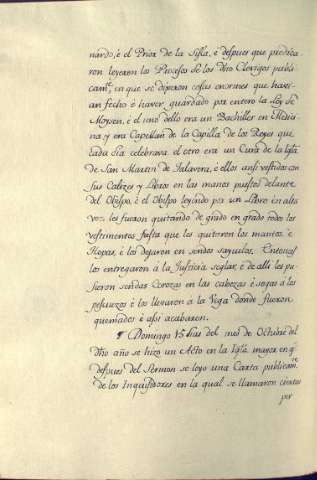 nardo, è el Prior de la Sisla, è despues que predica
ron leyeron los Procesos de los dhos Clerigos publi
camte, en que se digeron cosas enormes que havi-
an fecho è haver guardado por entero la Ley de
Moysen, è el uno dello era un Bachiller en Medici
na y era Capellan de la Capilla de los Reyes que
cada dia celebrava. el otro era un Cura de la Iglª
de San Martin de Talavera, è ellos ansi vestidos con
sus Calizes y Libros en las manos puestos delante
del Obispo, è el Obispo leyendo por un Libro en alta
voz les fueron quitando de grado en grado todos los
vestimentos, fasta que les quitaron los mantos è
Ropas, è los dejaron en sendos sayuelos. Entonces
los entregaron à la Justicia seglar, è de alli les pu
sieron sendas Corozas en las cabezas è sogas à los
pescuezos è los llevaron à la Vega donde fueron
quemados è assi acabaron.
¶ Domingo 15 dias del mes de Octubre del
dho año se hizo un Acto en la Iglª mayor en q̃
despues del Sermon se leyo una Carta publicamte
de los Inquisidores en la qual se llamaron ciertos
por